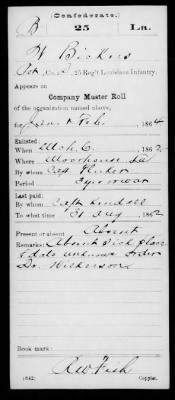 (Confederate.)
B 25 La.
H Bickers
Pvt, Co. , 25 Reg't Louisiana Infantry.
Appears on
Company Muster Roll
of the organization named above,
for Jan & Feb, 1864
Enlisted:
When Mch 6, 1862
Where Moorhouse La
By whom Capt
Period
Last paid:
By whom Capt Kendall
To what time 31 Aug 1862
Present or absent Absent
Remarks: Absent sick place
& date unknown order
Dr. Wilkerson
Book mark:
R W Fish
(642) Copyist.